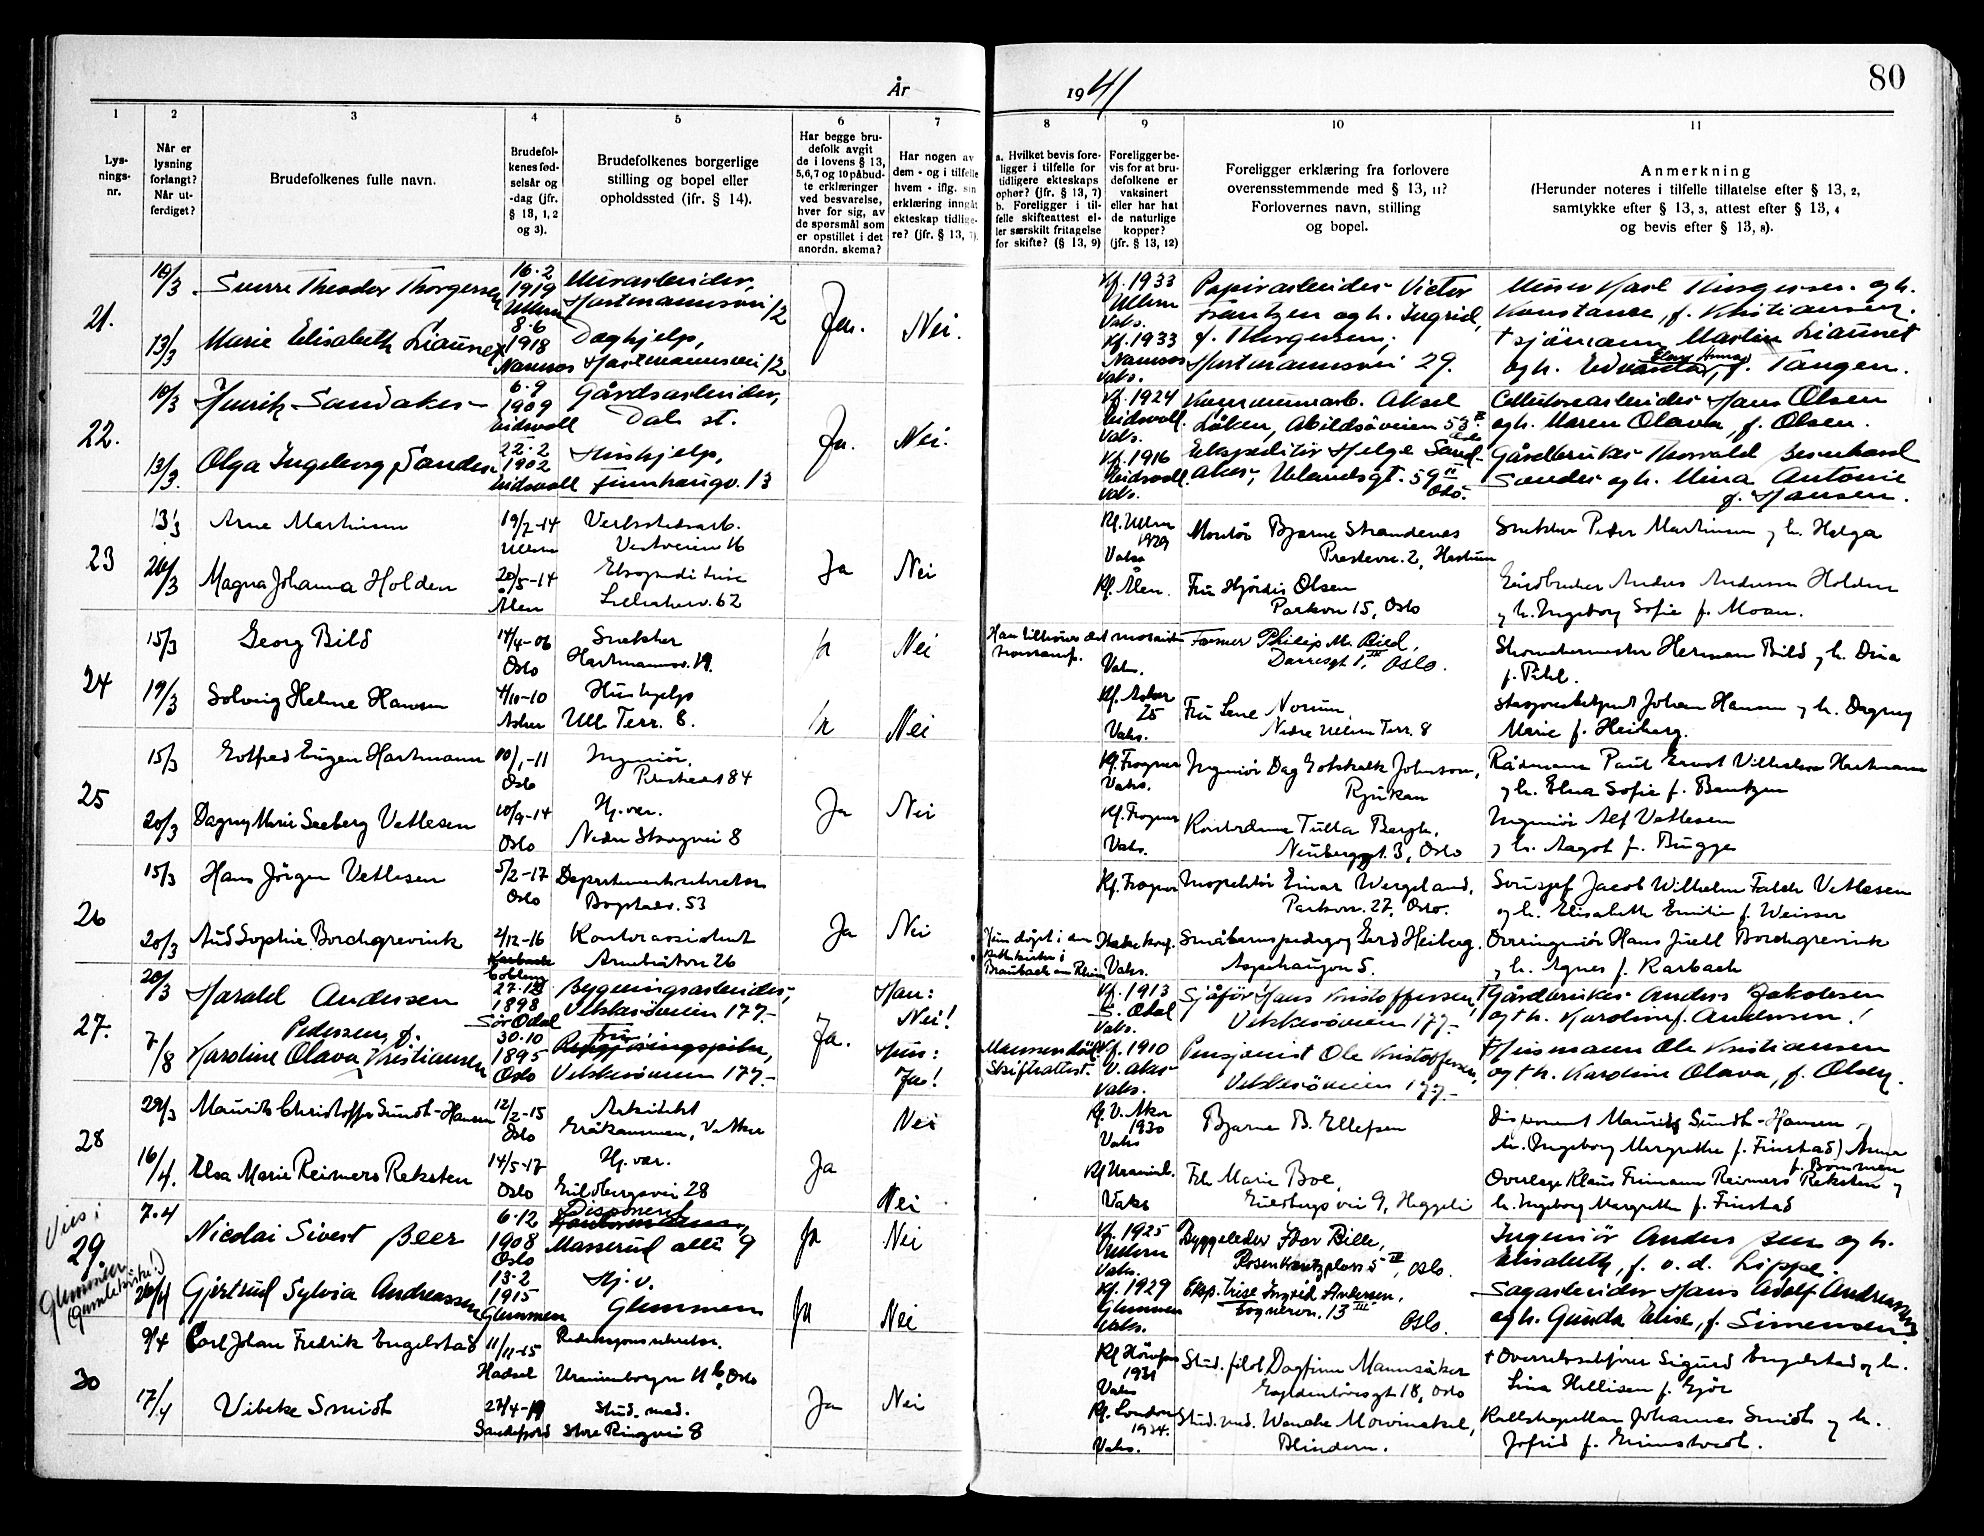 År
1941
80
1
2
3
4
5
6
7
8
9
10
11
Lys-
nings-
nr.
Når er
lysning
forlangt?
Når ut-
ferdiget?
Brudefolkenes fulle navn.
Brudefol-
kenes fød-
selsår og
-dag (jfr.
§ 13, 1, 2
og 3).
Brudefolkenes borgerlige
stilling og bopel eller
opholdssted (jfr. § 14).
Har begge bru-
defolk avgit
de i lovens § 13,
5, 6, 7 og 10 påbud-
te erklæringer
ved besvarelse,
hver for sig, av
de spørsmål som
er opstillet i det
anordn. skema?
Har nogen av
dem - og i tilfelle
hvem - iflg. sin
erklæring inngåt
ekteskap tidlige-
re? (jfr. § 13, 7).
a. Hvilket bevis fore-
ligger i tilfelle for
tidligere ekteskaps
ophør? (jfr. § 13, 7)
b. Foreligger i til-
felle skifteattest el-
ler særskilt fritagelse
for skifte? (§ 13, 9)
Foreligger be-
vis for at bru-
defolkene er
vaksinert
eller har hat
de naturlige
kopper?
(jfr. § 13, 12)
Foreligger erklæring fra forlovere
overensstemmende med § 13, 11?
Forlovernes navn, stilling
og bopel.
Anmerkning
(Herunder noteres i tilfelle tillatelse efter § 13, 2,
samtykke efter § 13, 3, attest efter § 13, 4
og bevis efter § 13, 8).
21.
10/3
Sverre Theodor Thorgersen
16.2
1919
Ullern
Murarbeider,
Hartmannsvei 12
Ja.
Nei.
Kf. 1933
Ullern
Vaks.
Papirarbeider Victor
Frantzen og h. Ingrid,
f. Thorgersen,
Hartmannsvei 29.
Murer Karl Thorgersen og h.
Konstance, f. Kristiansen.
13/3
Marie Elisabeth Liaunet
8.6
1918
Namsos
Daghjelp,
Hartmannsvei 12
Kf. 1933
Namsos
Vaks.
† sjömann Martin Liaunet
og h. f. Tangen.
22.
10/3
Henrik Sandaker
6.9
1909
Eidsvoll
Gårdsarbeider,
Dal st.
Ja.
Nei.
Kf. 1924
Eidsvoll.
Vaks.
Kommunearb. Aksel
Löken, Abildsöveien 53
Cellulosearbeider Hans Olsen
og h. Maren Olava, f. Olsen.
13/3.
Olga Ingeborg Sander
22.2
1902
Eidsvoll
Hushjelp,
Finnhaugv. 13
Kf. 1916
Eidsvoll.
Vaks.
Ekspeditör Helge Sand-
aker, Uelandsgt. 59 II
Oslo.
Gårdbruker Thorvald Bernhard
Sander og h. Mina Antonie
f. Hansen.
23
13/3
Arne Martinsen
19/2-14
Ullern
Verkstedsarb.
Vestveien 16
Ja
Nei
Kf. Ullern
1929
Vaks
Montör Bjarne Strandenes
Prestevn. 2,
Snekker Peder Martinsen og h. Helga
26/3
Magna Johanna Holden
20/5-14
Ålen
Ekspeditrise
Lilleakerv. 62
Kf. Ålen.
Fru Hjördis Olsen
Parkvn 15, Oslo
Gårdbruker Anders Andersen Holden
og h. Ingeborg Sofie f. Moan.
24
15/3
Georg Bild
14/4-06
Oslo
Snekker
Hartmannsv. 19.
Ja
Nei
Han tilhörer det mosaiske
trossamf.
Vaks.
Farmer Philip M. Bild,
Darresgt 1, III Oslo.
Skomakermester Herman Bild og h. Dina
f. Pihl.
19/3
Solveig Helene Hansen
4/10-10
Asker
Hushjelp
Ull. Terr. 8.
Ja
Nei
Kf. Asker
25
Vaks.
Fru Lene Norum,
Nedre Ullern Terr. 8
Stasjonsbetjent Johan Hansen og h. Dagny
Marie f. Heiberg.
25
15/3
Gotfred Eugen Hartmann
10/1-11
Oslo
Ingeniör,
Pilestredet 84
Ja
Nei
Kf. Frogner
Vaks.
Ingeniör Dag Gotskalk Johnson,
Rjukan
Rådmann Paul Ernst Vilhelm Hartmann
og h. Elna Sofie f. Bentzen
20/3
Dagny Marie Seeberg Vetlesen
10/9-14
Oslo
Hj. vær.
Nedre Skogvei 8
Kf. Frogner
Vaks.
Kontordame Tulla Bergh,
Neuberggt. 3, Oslo
Ingeniör Alf Vetlesen
og h. Aagot f. Bugge
26
15/3
Hans Jörgen Vetlesen
5/2-17
Oslo
Departementssekretær
Bygdöal. 53
Ja
Nei
Kf. Frogner
Inspektör Einar Wergeland,
Parkvn. 27, Oslo.
Sousjef Jacob Wilhelm Falck Vetlesen
og h. Elisabeth Emilie f. Weisser
20/3
Aud Sophie Borchgrevink
2/12-16
Coblenz
Kontorassistent
Arnebråtvn 26
Hun döpt i den
Braubach am Rhein
Vaks.
Småbarnspedagog Gerd Heiberg,
Aspehaugen 5.
Overingeniör Hans Juell Borchgrevink
og h. Agnes f. Karbach
27.
20/3
Harald Andersen
27.12
1898
Sör Odal
Bygningsarbeider,
Vekkeröveien 177.-
Ja.
Han:
Nei!
Kf. 1913
S. Odal
Vaks.
Sjåför Hans Kristoffersen,
Vekkeröveien 177.-
† Gårdbruker Anders Jakobsen
og † h. Karoline f. Andersen!
7/8
Pedersen, f.
Karoline Olava Kristiansen
30.10
1895
Oslo
Fru
Rengjöringspike,
Vekkeröveien 177.-
Hun:
Ja!
Mannen död.
Skifteattest.
Kf. 1910
V. Aker
Vaks.
Pensjonist Ole Kristoffersen,
Vekkeröveien 177.-
† Husmann Ole Kristiansen
og † h. Karoline Olava, f. Olsen.
28
29/3
Maurits Christoffer Sundt-Hansen
12/2-15
Oslo
Arkitekt
Gråkammen, V. Aker
Ja
Nei
Kf. V. Aker
1930
Vaks
Bjarne B. Ellefsen
Disponent Maurits Sundt-Hansen
h. (Ingeborg Margrethe f. Finstad) Anna
f. Bommen
16/4.
Elsa Marie Reimers Reksten
14/5-17
Oslo
Hj. vær.
Guldbergsvei 28
Nei
Kf. Uranienb.
Vaks
Frk. Marie Boe,
Guldbergs vei 9, Heggeli
Overlege Klaus Finmann Reimers Reksten og
h. Ingeborg Margrethe f. Finstad
Vies i
Glemmen
(Gamlekirke!)
29
7.4
Nicolai Sivert Beer
6.12
1908
Oslo
Disponent
Masserud allé 9
Ja
Nei
Kf. 1925
Ullern
Vaks.
Byggeleder Thor Bille,
Rosenkrantzplass 5 IV, Oslo.
Ingeniör Anders Beer og h.
Elisabeth, f. v. d. Lippe.
26/4
Gjertrud Sylvia Andreassen
13.2
1915
Glemmen
Hj. v.
Glemmen
Ja
Nei
Kf. 1929
Glemmen
Vaks.
Eksp.trise Ingrid Andersen,
Sognsvn. 13 III
Oslo.
Sagarbeider Hans Adolf Andreassen
og h. Gunda Elise, f. Simensen.
30
9/4
Carl Johan Fredrik Engelstad
11/11-15
Hadsel
Redaksjonssekretær.
Uranienborgvn 11 b, Oslo
Ja
Nei
1931
Vaks
Stud. filol. Dagfinn Mannsåker
Gyldenlövesgt 18, Oslo
† Overrettssakförer Sigurd Engelstad og h.
Lina Hellisen f. Gjör
17/4
Vibeke Smidt
27/4-19
Sandefjord
Stud. med.
Store Ringvei 8
Kf. London
1934.
Vaks.
Stud. med. Wenche Mowinckel,
Blindern.
Kallskapellan Johannes Smidt og h.
Jofrid f. Grimstvedt.